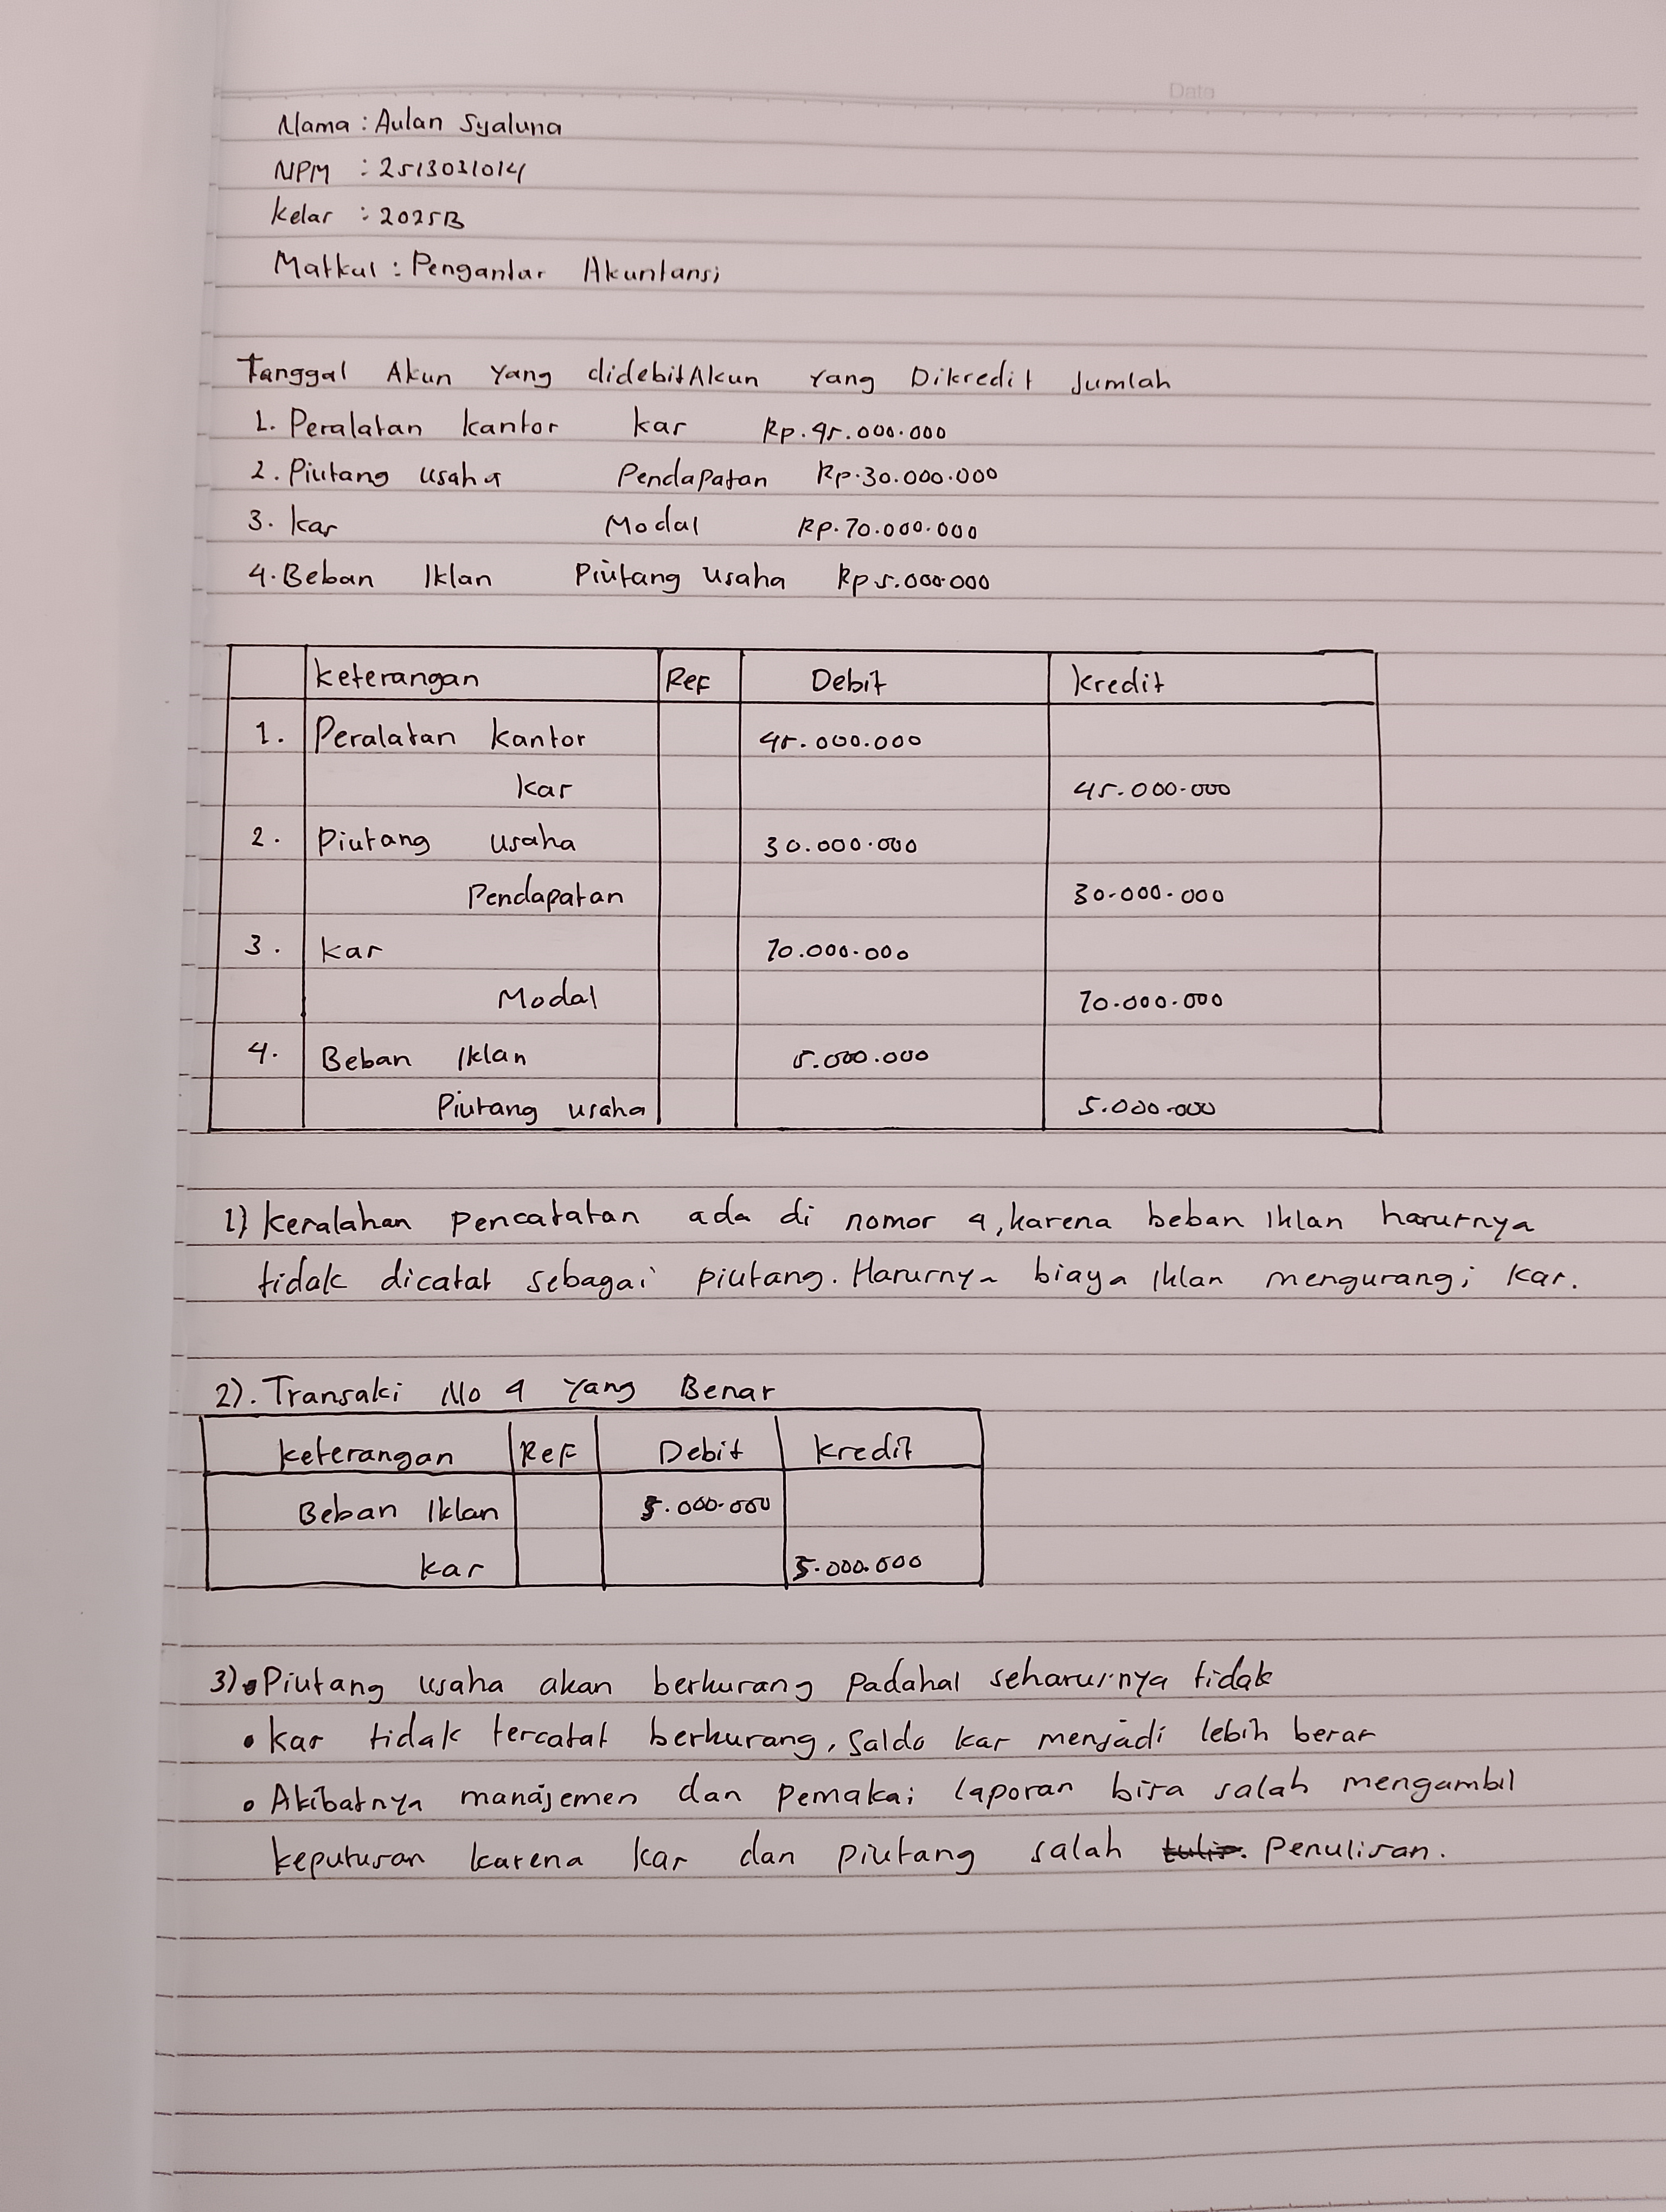 Data
Nama : Aulan Syaluna
NPM : 2513031014
Kelas : 2025B
Matkul : Pengantar Akuntansi
Tanggal Akun Yang didebit Akun Yang Dikredit Jumlah
1. Peralatan kantor kas Rp. 45.000.000
2. Piutang usaha Pendapatan Rp. 30.000.000
3. kas Modal Rp. 70.000.000
4. Beban Iklan Piutang usaha Rp 5.000.000
keterangan Ref Debit kredit
1. Peralatan kantor 45.000.000
kas 45.000.000
2. Piutang usaha 30.000.000
Pendapatan 30.000.000
3. kas 70.000.000
Modal 70.000.000
4. Beban Iklan 5.000.000
Piutang usaha 5.000.000
1) kesalahan pencatatan ada di nomor 4, karena beban iklan harusnya
tidak dicatat sebagai piutang. Harusnya biaya iklan mengurangi kas.
2). Transaki No 4 Yang Benar
keterangan Ref Debit kredit
Beban Iklan 5.000.000
kas 5.000.000
3) • Piutang usaha akan berkurang padahal seharusnya tidak
• kas tidak tercatat berkurang, saldo kas menjadi lebih besar
• Akibatnya manajemen dan pemakai laporan bisa salah mengambil
keputusan karena kas dan piutang salah tulis. Penulisan.